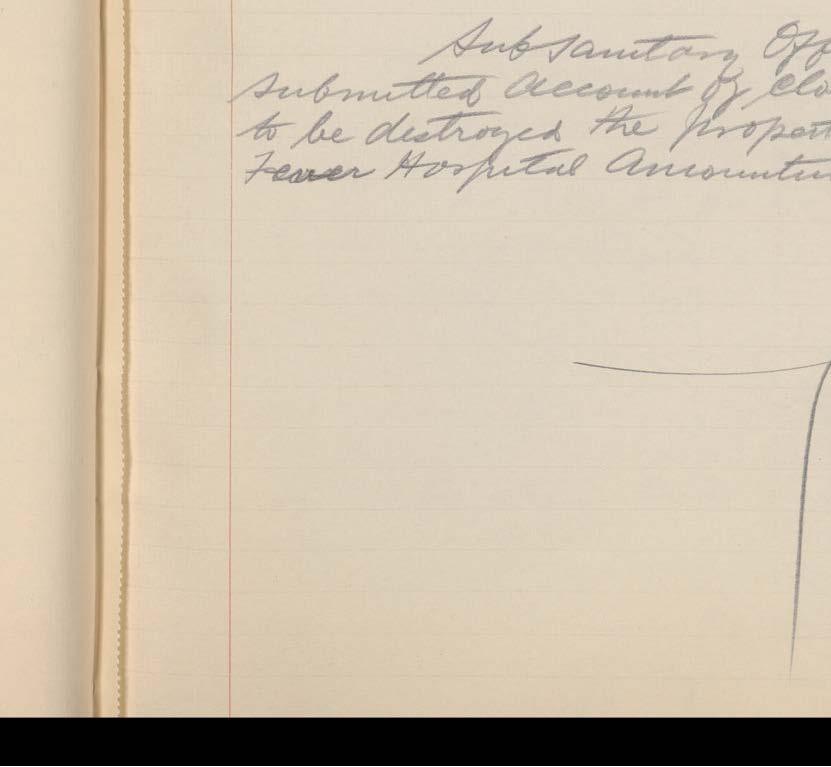 Sub Sanitary Off
submitted account of clo
to be destroyed the propert
Fever Hospital amountin